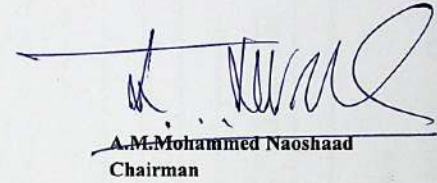 A.M.Mohammed Naoshaad
Chairman